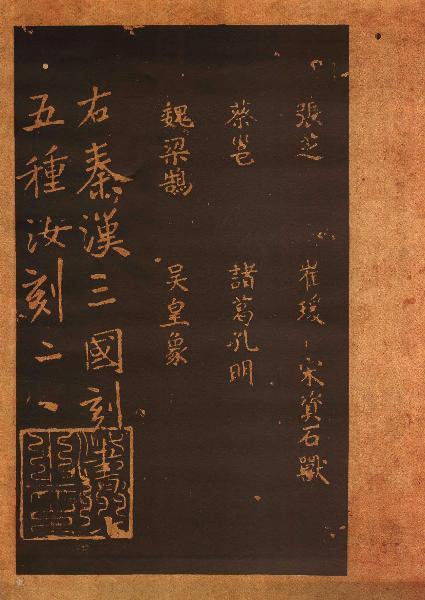 張芝 崔瑗 宋資石獸
蔡邕 諸葛孔明
魏梁鵠 吴皇象
右秦漢三國刻
五種汝刻二八